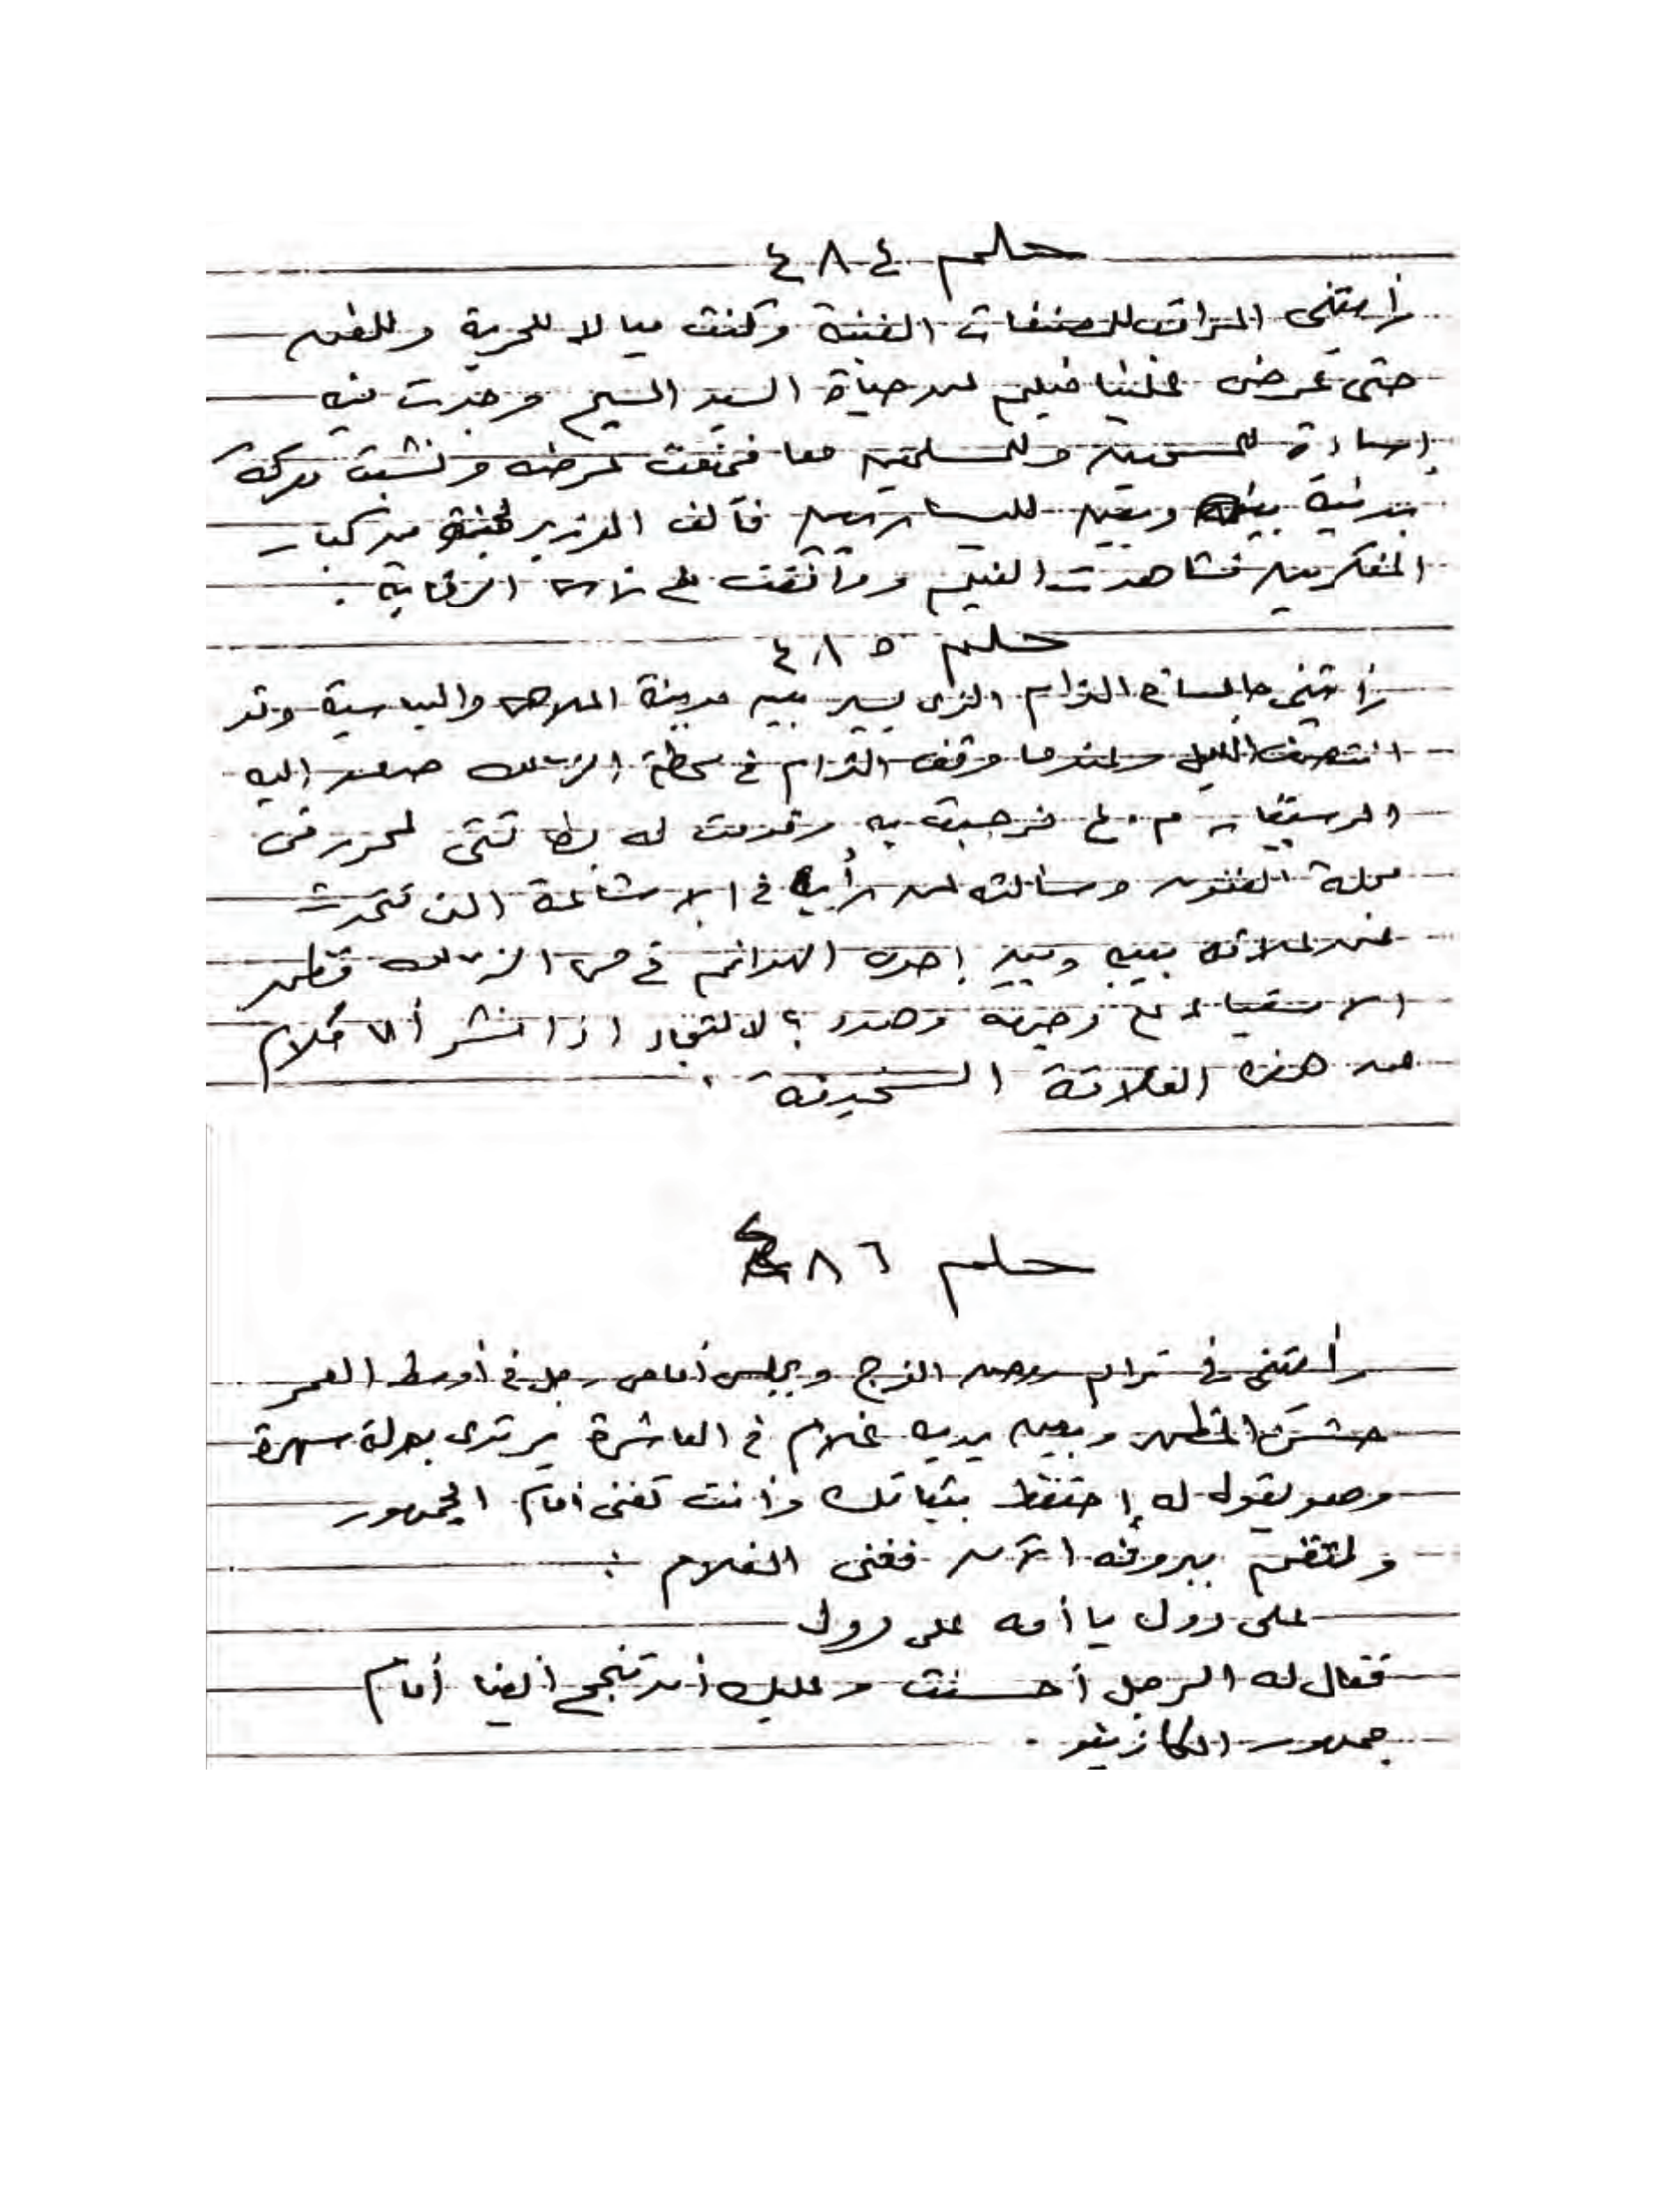 حلم ٤٨٤
رأيتنى المراقب للمصنفات الفنية وكنت ميالا للحرية وللفن
حتى عرض علينا فيلم عن حياة السيد المسيح وجدت فيه
إساءة للمسيحيين وللمسلمين معا فمنعت عرضه ونشبت معركة
بينى وبين اليساريين فألف الوزير لجنة من كبار
المفكرين فشاهدت الفيلم ووافقت على رأى الرقابة.
حلم ٤٨٥
رأيتنى جالسا فى الترام الذى يسير بين مدينة الملاهى والعباسية وقد
انتصف الليل وعندما وقف الترام فى محطة الزمالك صعد اليه
الموسيقار م.ع فرحبت به وقدمت له بطاقتى كمحرر فى
مجلة الفنون وسألته عن رأيه فى الإشاعة التى تتحدث
عن علاقة بينه وبين إحدى الهوانم فى حى الزمالك فظهر
الاستياء على وجهه وهدد بالانتحار اذا نشر أى كلام
عن هذه العلاقة السخيفة.
حلم ٤٨٦
رأيتنى فى ترام روض الفرج ويجلس أمامى رجل فى أوسط العمر
حسن المظهر وبين يديه غلام فى العاشرة يرتدى بدلة سهرة
وهو يقول له إحتفظ بثباتك وأنت تغنى أمام الجمهور
ولنقم ببروفه الآن فغنى الغلام :
على دول يا أمه على دول
فقال له الرجل أحسنت وعليك أن تنجح أيضا أمام
جمهور الكازينو.